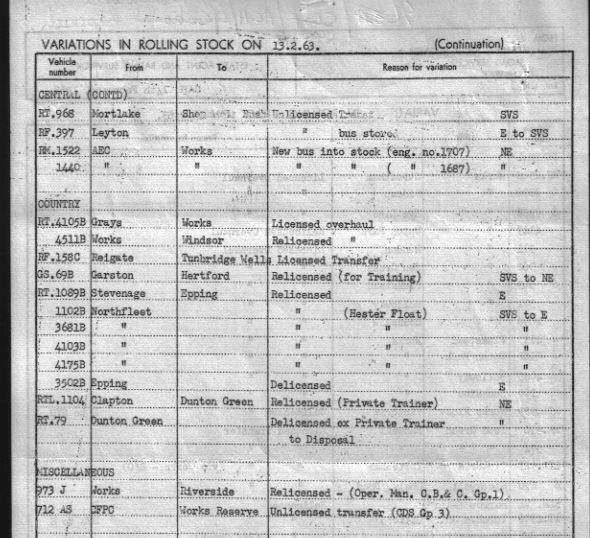 VARIATIONS IN ROLLING STOCK ON 13.2.63. (Continuation)
Vehicle number From To Reason for variation
CENTRAL (CONTD)
RT.968 Mortlake Shepherds Bush Unlicensed SVS
RF.397 Leyton " bus store. E to SVS
RM.1522 AEC Works New bus into stock (eng. no.1707) NE
1440 " " " " ( " 1687) "
COUNTRY
RT.4105B Grays Works Licensed overhaul
4511B Works Windsor Relicensed "
RF.158C Reigate Tunbridge Wells Licensed Transfer
GS.69B Garston Hertford Relicensed (for Training) SVS to NE
RT.1089B Stevenage Epping Relicensed E
1102B Northfleet " (Hester Float) SVS to E
3681B " " " "
4103B " " " "
4175B " " " "
3502B Epping Delicensed E
RTL.1104 Clapton Dunton Green Relicensed (Private Trainer) NE
RT.79 Dunton Green Delicensed ex Private Trainer "
to Disposal
MISCELLANEOUS
973 J Works Riverside Relicensed - (Oper. Man. C.B.& C. Gp.1)
712 AS CFPC Works Reserve Unlicensed transfer (CDS Gp 3)